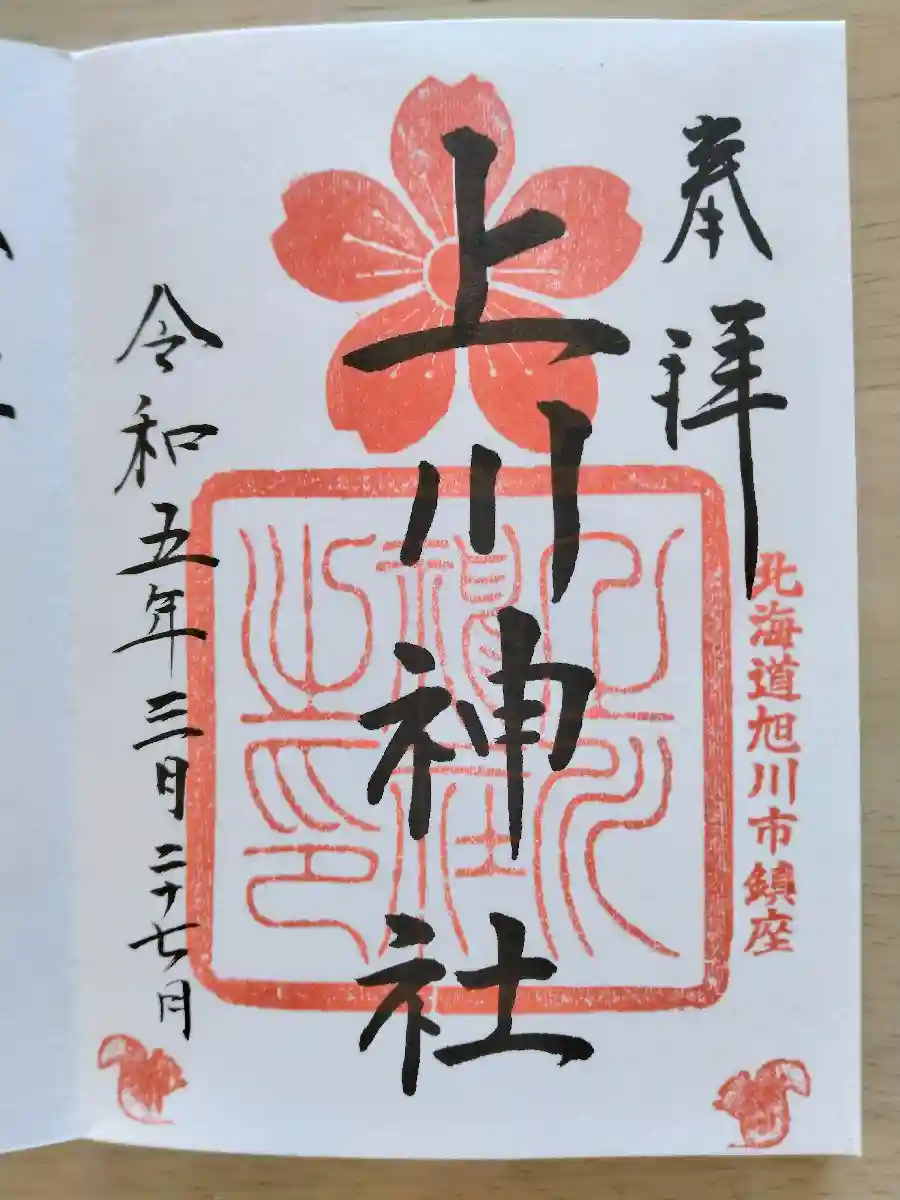 奉拝
北海道旭川市鎮座
上川神社
上川神社之印
令和五年三月二十七日